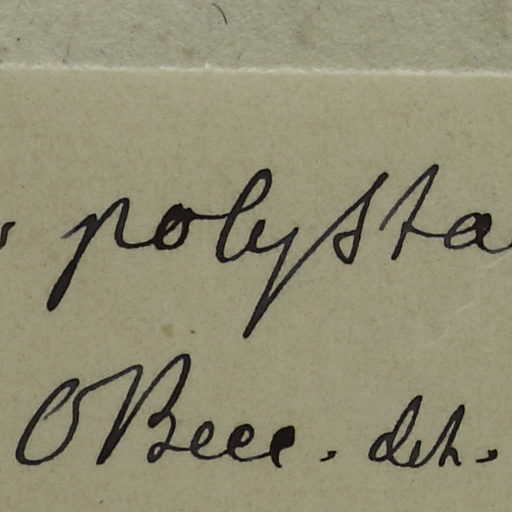 polysta
OBecc. det.